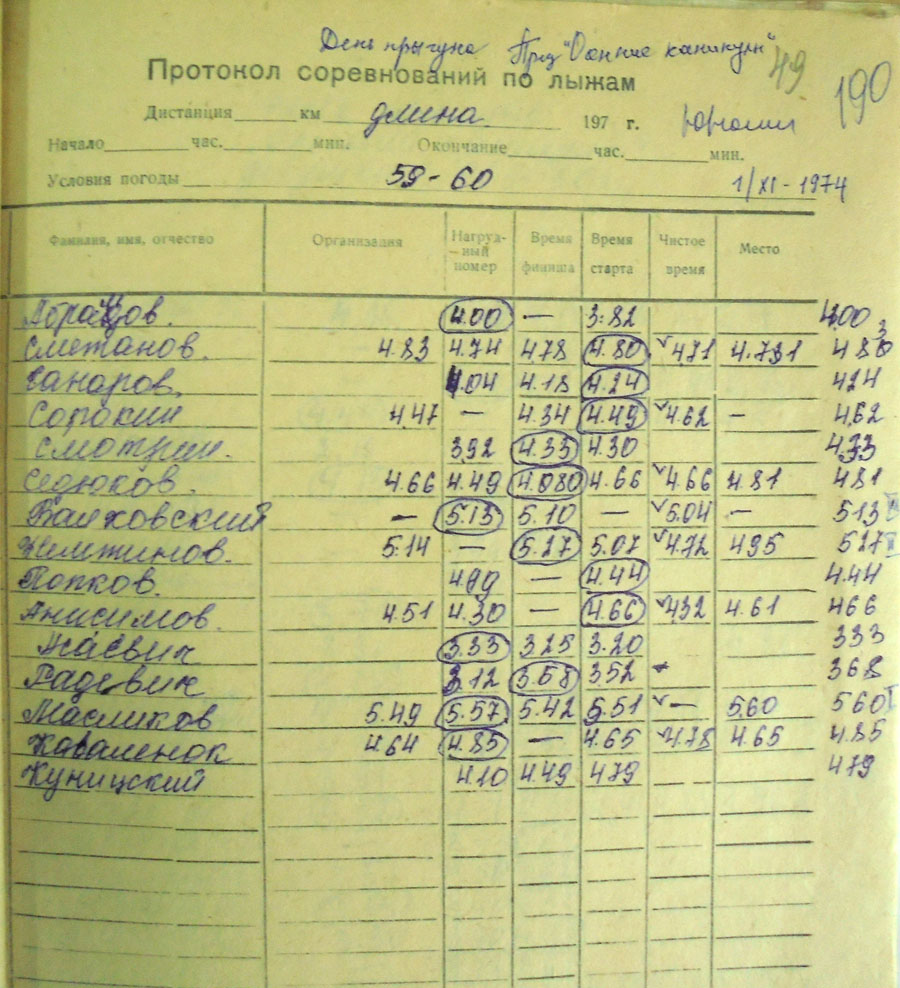 День прыгуна Приз "Осенние каникулы"
49 190
Протокол соревнований по лыжам
Дистанция км длина 197 г. юноши
Начало час. мин. Окончание час. мин.
Условия погоды 59-60 1/XI-1974
Фамилия, имя, отчество Организация Нагруд-ный номер Время финиша Время старта Чистое время Место
4.00 — 3.82 4.00
Сметанов. 4.83 4.74 4.78 4.80 4.71 4.731
4.04 4.18 4.24 4.24
Сорокин 4.47 — 4.34 4.49 4.62 — 4.62
Смотрин. 3.92 4.33 4.30 4.33
Седюков. 4.66 4.49 4.66 4.66 4.81 4.81
— 5.13 5.10 — 5.04 — 5.13
5.14 — 5.27 5.07 4.72 4.95 5.27
Попков. — 4.44 4.44
Анисимов. 4.51 4.30 — 4.66 4.32 4.61 4.66
3.33 3.25 3.20 3.33
Радевич 3.12 3.52 3.68
Масликов 5.49 5.57 5.42 5.51 — 5.60 5.60 I
Каваленок 4.64 4.85 — 4.65 4.78 4.65 4.85
Куницский 4.10 4.49 4.79 4.79